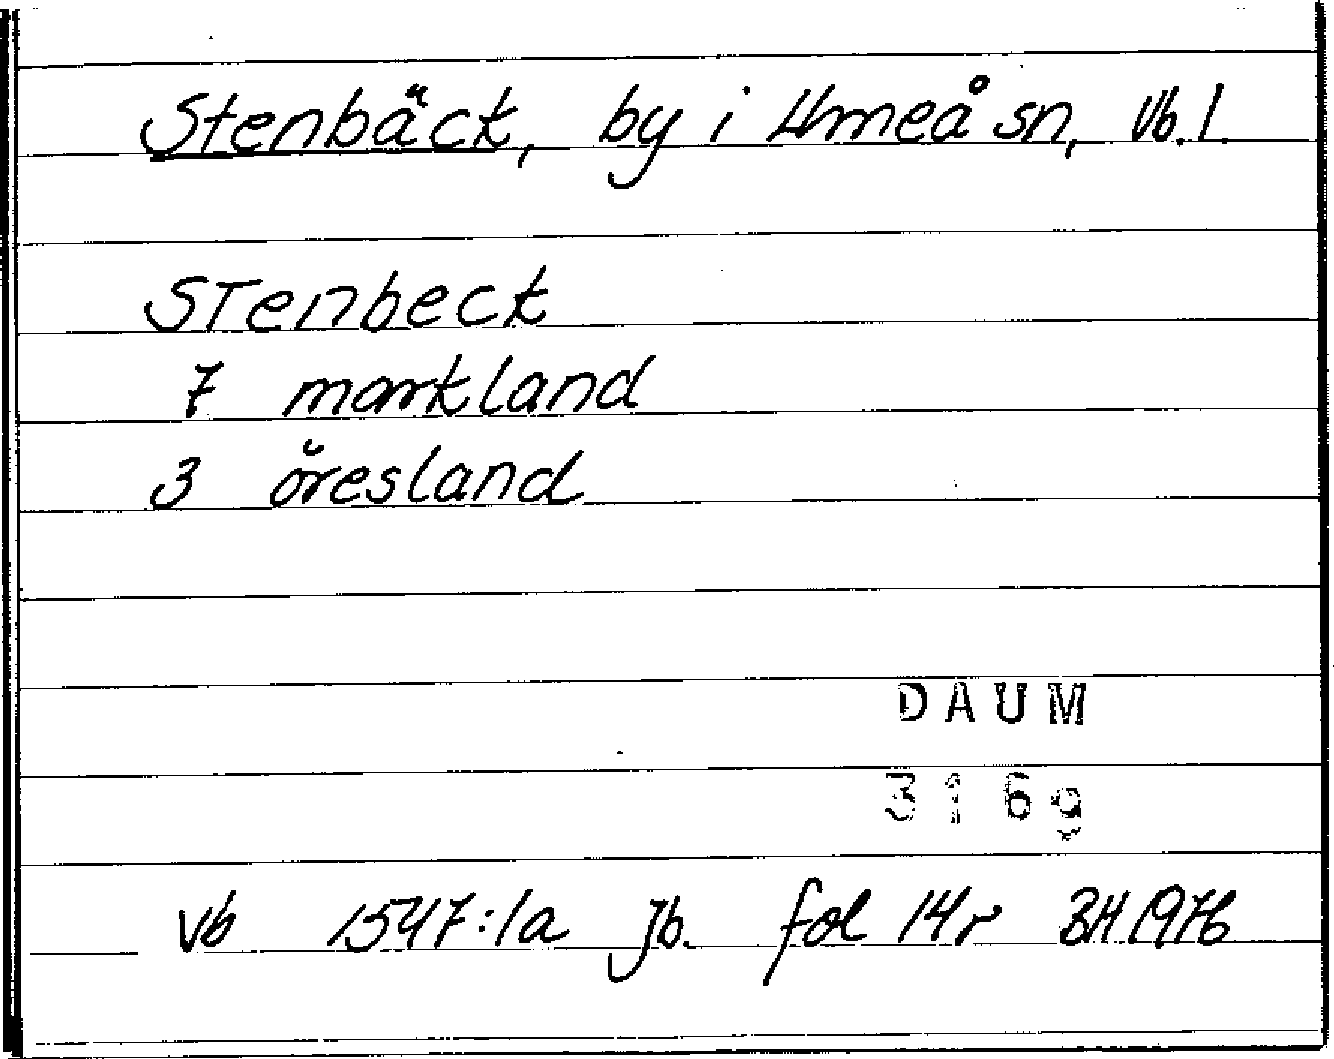 Stenbäck, by i Umeå sn, Vb. l.
Stenbeck
7 markland
3 öresland
DAUM
3169
Vb 1547:1a Jb. fol 14r BH 1976